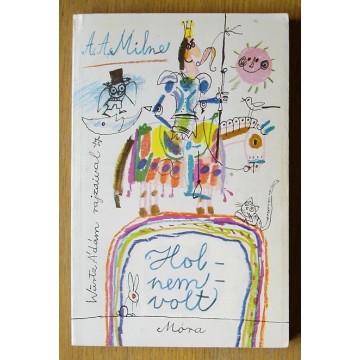 A. A. Milne
Würtz Ádám rajzaival
Hol-
nem-
volt
Móra